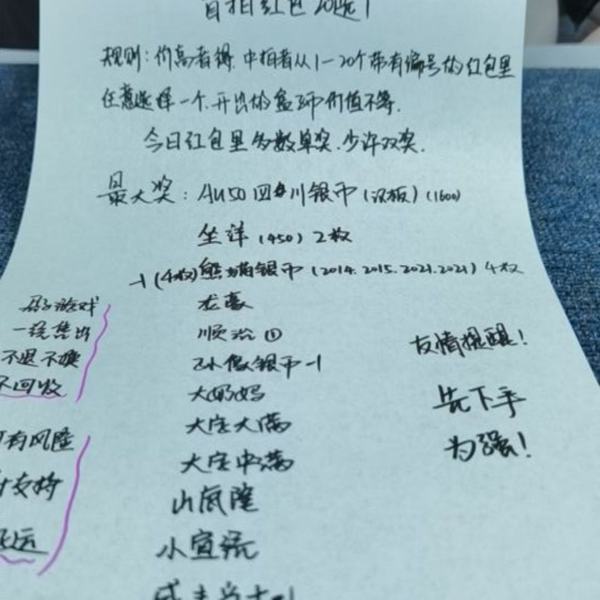 首拍红包20选1
规则:价高者得,中拍者从1-20个带有编号的红包里
任意选择一个,开出的盒子币价值不等.
今日红包里多数单奖,少许双奖.
最大奖:AU50四川银币(汉板)(1600)
坐洋(450)2枚
-1(4枚)熊猫银币(2014.2015.2021.2021)4枚
龙毫
顺治①
-1
大奶妈
大定大满
大定中满
山底隆
小宣统
游戏
一经售出
不退不换
不回收
有风险
支持
友情提醒!
先下手
为强!